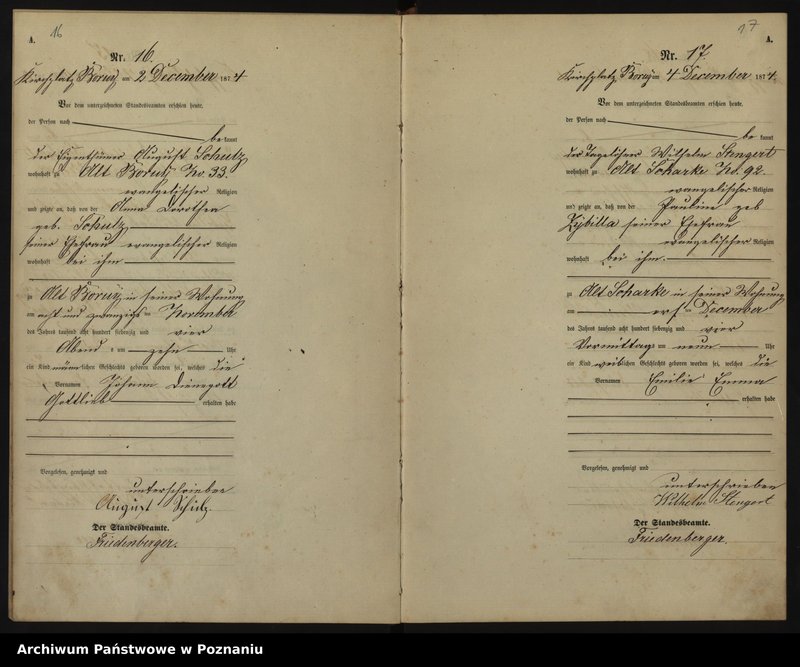 16
A.
Nr. 16.
Kirchplatz Boruy am 2 December 1874
Vor dem unterzeichneten Standesbeamten erschien heute,
der Person nach
be kannt
der Eigenthümer August Schulz
wohnhaft zu Alt Boruy No. 33.
evangelischer Religion
und zeigte an, daß von der Anna Dorothea
geb. Schulz
seiner Ehefrau evangelischer Religion
wohnhaft bei ihm
zu Alt Boruy in seiner Wohnung
am acht und zwanzigsten November
des Jahres tausend acht hundert siebenzig und vier
Abends um zehn Uhr
ein Kind männlichen Geschlechts geboren worden sei, welches die
Vornamen Johann Dienegott
Gottlieb erhalten habe
Vorgelesen, genehmigt und
unterschrieben
August Schulz.
Der Standesbeamte.
Friedenberger.
17
A.
Nr. 17.
Kirchplatz Boruy am 4 December 1874.
Vor dem unterzeichneten Standesbeamten erschien heute,
der Person nach
be kannt
der Tagelöhner Wilhelm Stengert
wohnhaft zu Alt Scharke No. 92.
evangelischer Religion
und zeigte an, daß von der Pauline geb
Zybilla seiner Ehefrau
evangelischer Religion
wohnhaft bei ihm.
zu Alt Scharke in seiner Wohnung
am December
des Jahres tausend acht hundert siebenzig und vier
Vormittags um neun Uhr
ein Kind weiblichen Geschlechts geboren worden sei, welches die
Vornamen Emilie Emma
erhalten habe
Vorgelesen, genehmigt und
unterschrieben
Wilhelm Stengert
Der Standesbeamte.
Friedenberger.
Archiwum Państwowe w Poznaniu